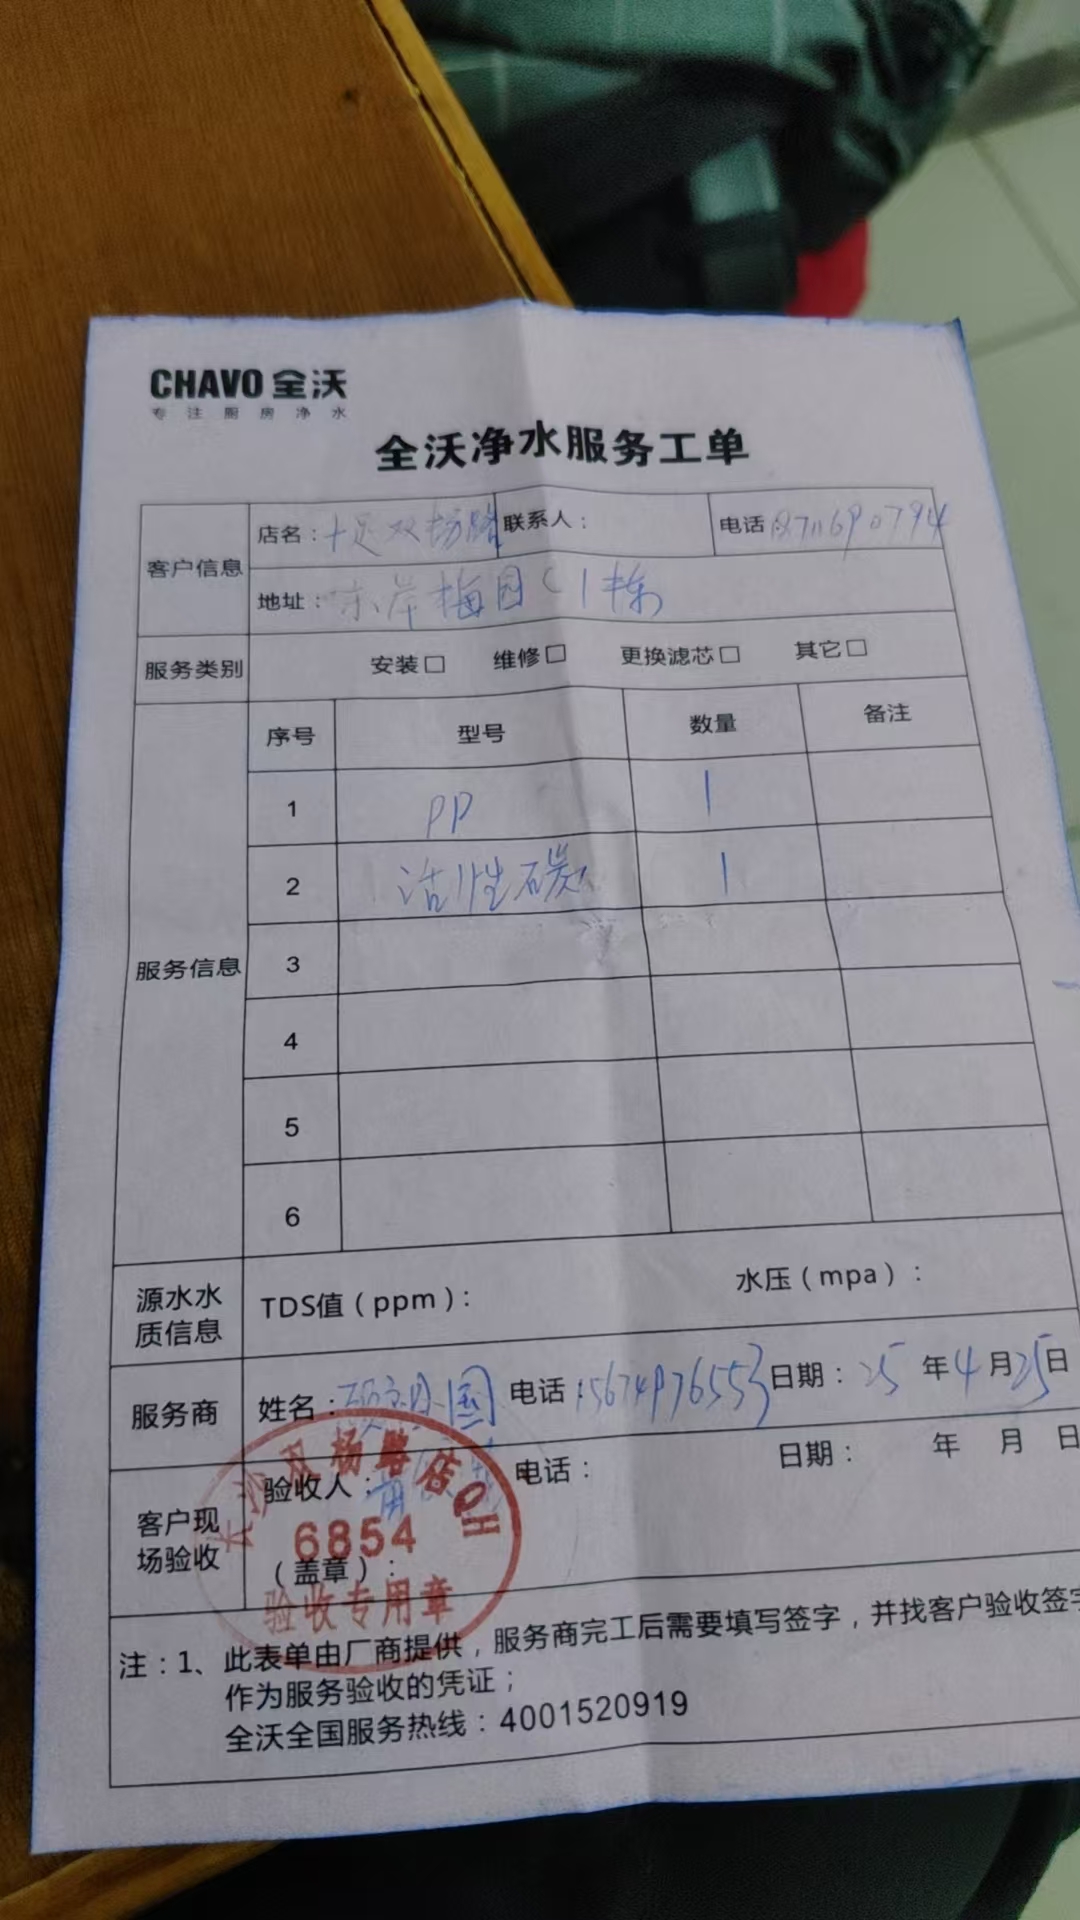 CHAVO 全沃
专注厨房净水
全沃净水服务工单
客户信息 店名：十足双杨路 联系人： 电话
地址：东岸梅园C1栋
服务类别 安装□ 维修□ 更换滤芯□ 其它□
服务信息 序号 型号 数量 备注
1 PP 1
2 活性碳 1
3
4
5
6
源水水质信息 TDS值（ppm）： 水压（mpa）：
服务商 姓名： 国 电话：15674976553 日期：25年4月25日
客户现场验收 验收人： 电话： 日期： 年 月 日
（盖章）：
长沙双杨路店QH
6854
验收专用章
注：1、此表单由厂商提供，服务商完工后需要填写签字，并找客户验收签字
作为服务验收的凭证；
全沃全国服务热线：4001520919